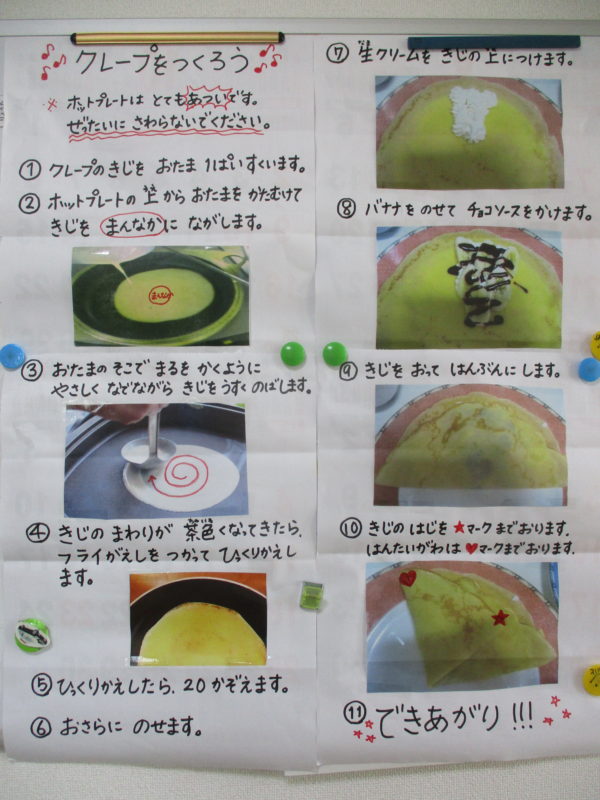 クレープをつくろう
※ ホットプレートは とても あついです。
ぜったいに さわらないでください。
① クレープのきじを おたま 1ぱいすくいます。
② ホットプレートの 上から おたまを かたむけて
きじを まんなかに ながします。
まんなか
③ おたまの そこで まるを かくように
やさしく なでながら きじを うすく のばします。
④ きじの まわりが 茶色くなってきたら、
フライがえしを つかって ひっくりかえし
ます。
⑤ ひっくりかえしたら、20 かぞえます。
⑥ おさらに のせます。
⑦ 生クリームを きじの 上につけます。
⑧ バナナを のせて チョコソースをかけます。
⑨ きじを おって はんぶんに します。
⑩ きじの はじを ★マーク までおります。
はんたいがわは ♥マークまでおります。
⑪ できあがり!!!